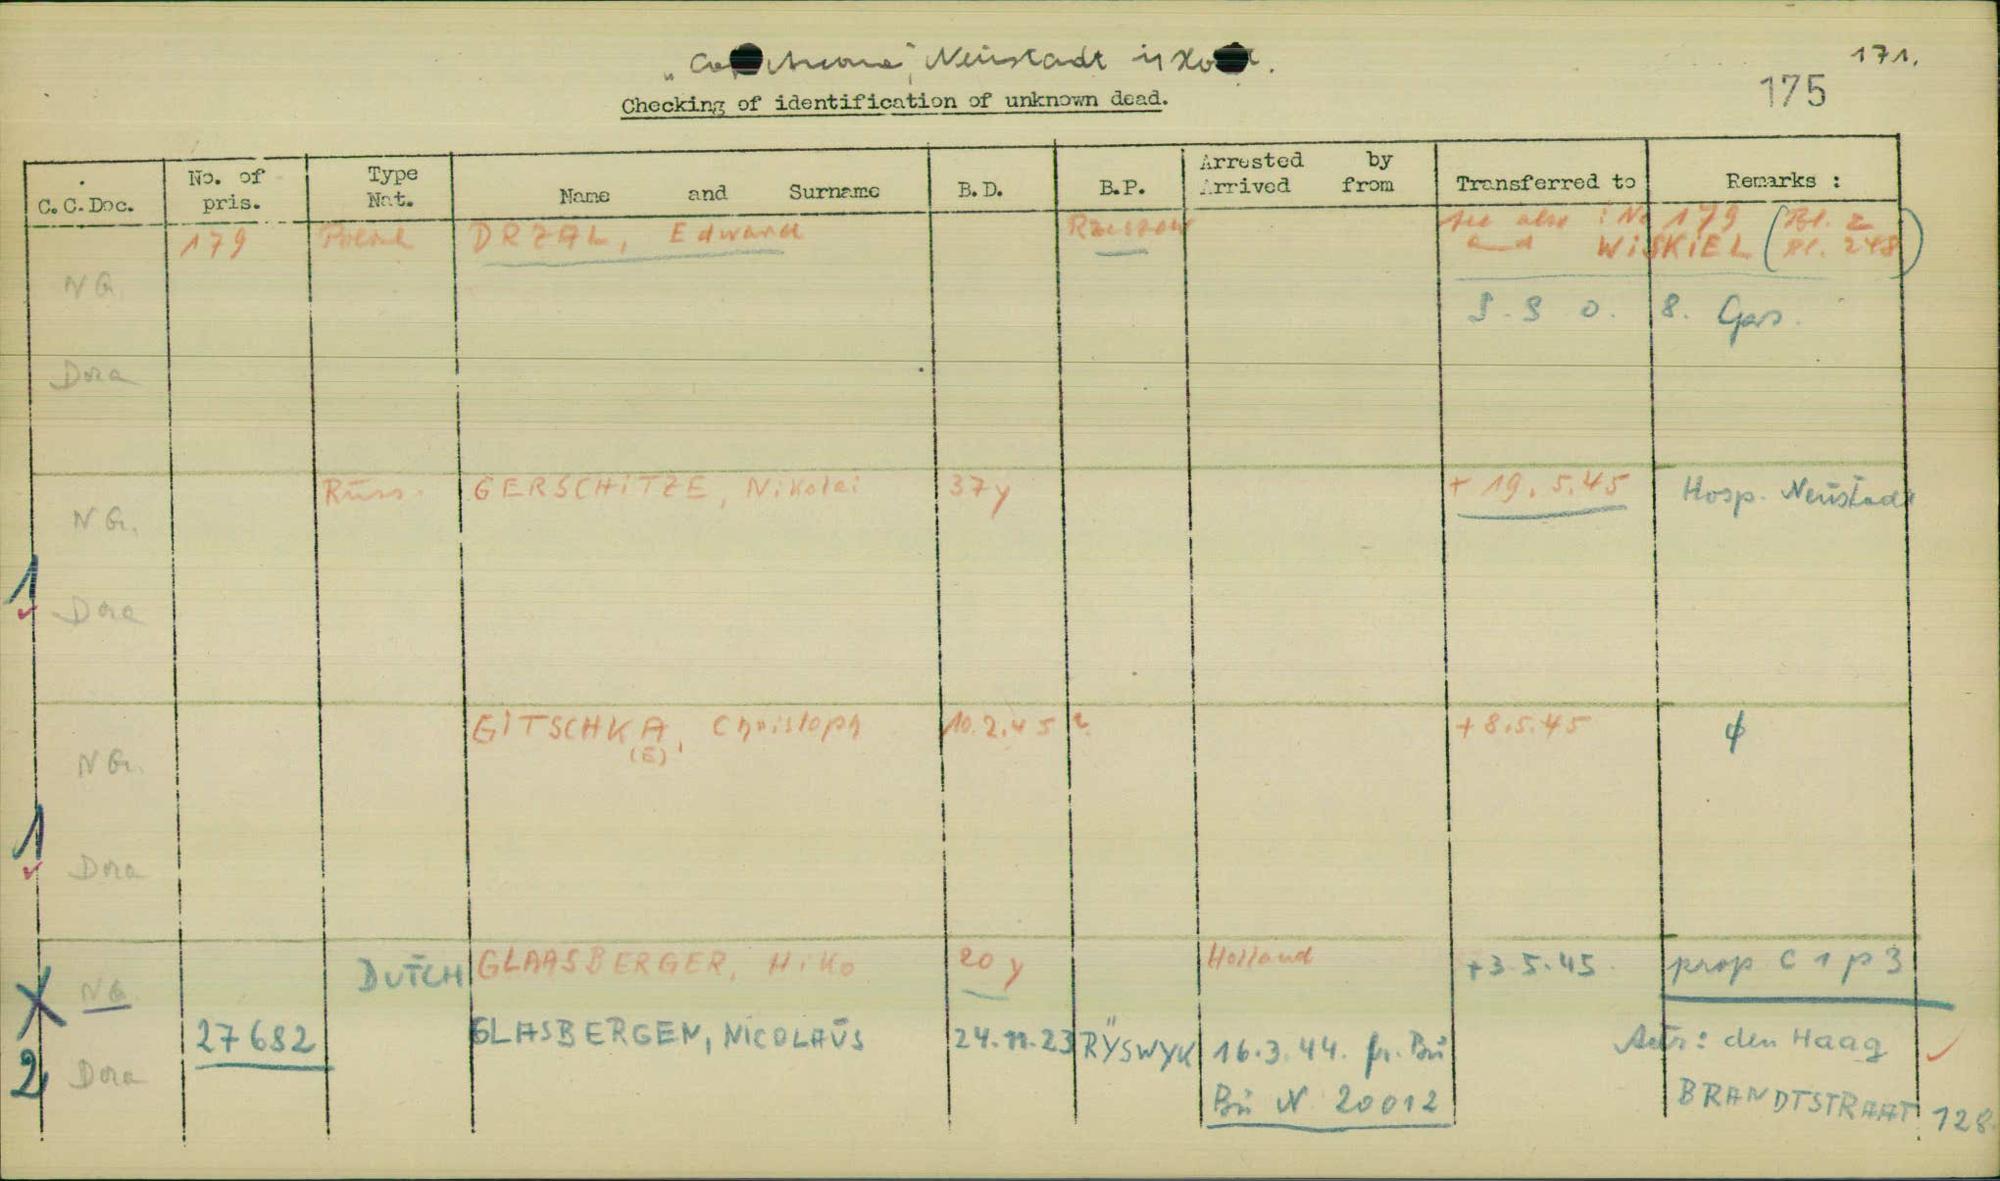 Neustadt i/
171.
175
Checking of identification of unknown dead.
C.C.Doc.
No. of pris.
Type Nat.
Name and Surname
B.D.
B.P.
Arrested by
Arrived from
Transferred to
Remarks :
179 DRZAL, Edward Rzeszow see also : No 179 (Bl. 2
and WiSKiEL Bl. 248)
NG.
S. S O. 8. Gps.
Dora
Russ. GERSCHiTZE, Nikolai 37y + 19.5.45 Hosp. Neustadt
NGr.
1
Dora
GITSCHKA, Christoph 10.2.45 ? + 8.5.45
(E)
NGr.
1
Dora
DUTCH GLAASBERGER, Hiko 20 y Holland +3.5.45. prop C 1 p 3
X NG
27682 GLASBERGEN, NICOLAUS 24.11.23 RYSWYK 16.3.44. fr. Bu Adr: den Haag
2 Dora
Bu N 20012 BRANDTSTRAAT 128.